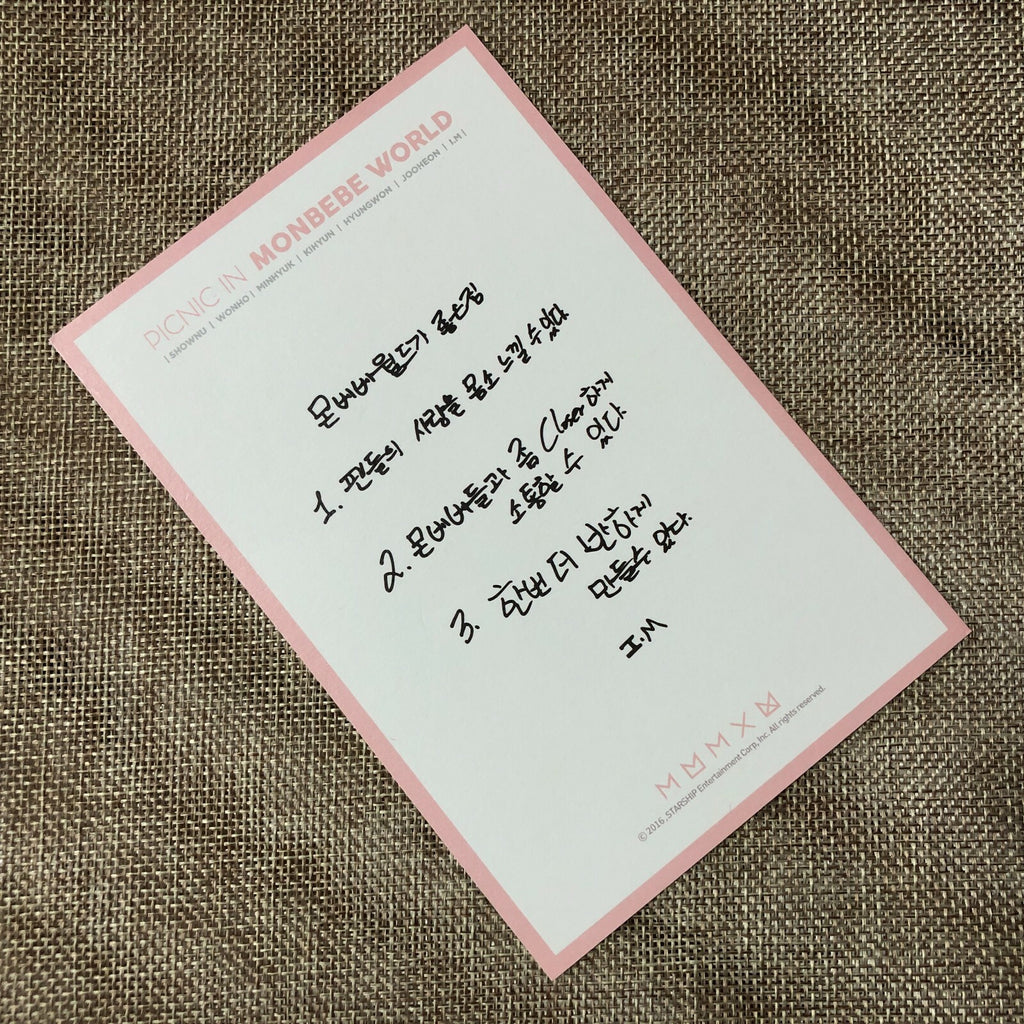 PICNIC IN MONBEBE WORLD
| SHOWNU | WONHO | MINHYUK | KIHYUN | HYUNGWON | JOOHEON | I.M |
몬베베월드가 좋은점
1. 팬들의 사랑을 몸소 느낄 수 있다
2. 몬베베들과 좀 Closer하게
소통할 수 있다.
3. 한번 더 반하게
만들수 있다.
I.M
© 2016. STARSHIP Entertainment Corp, Inc. All rights reserved.